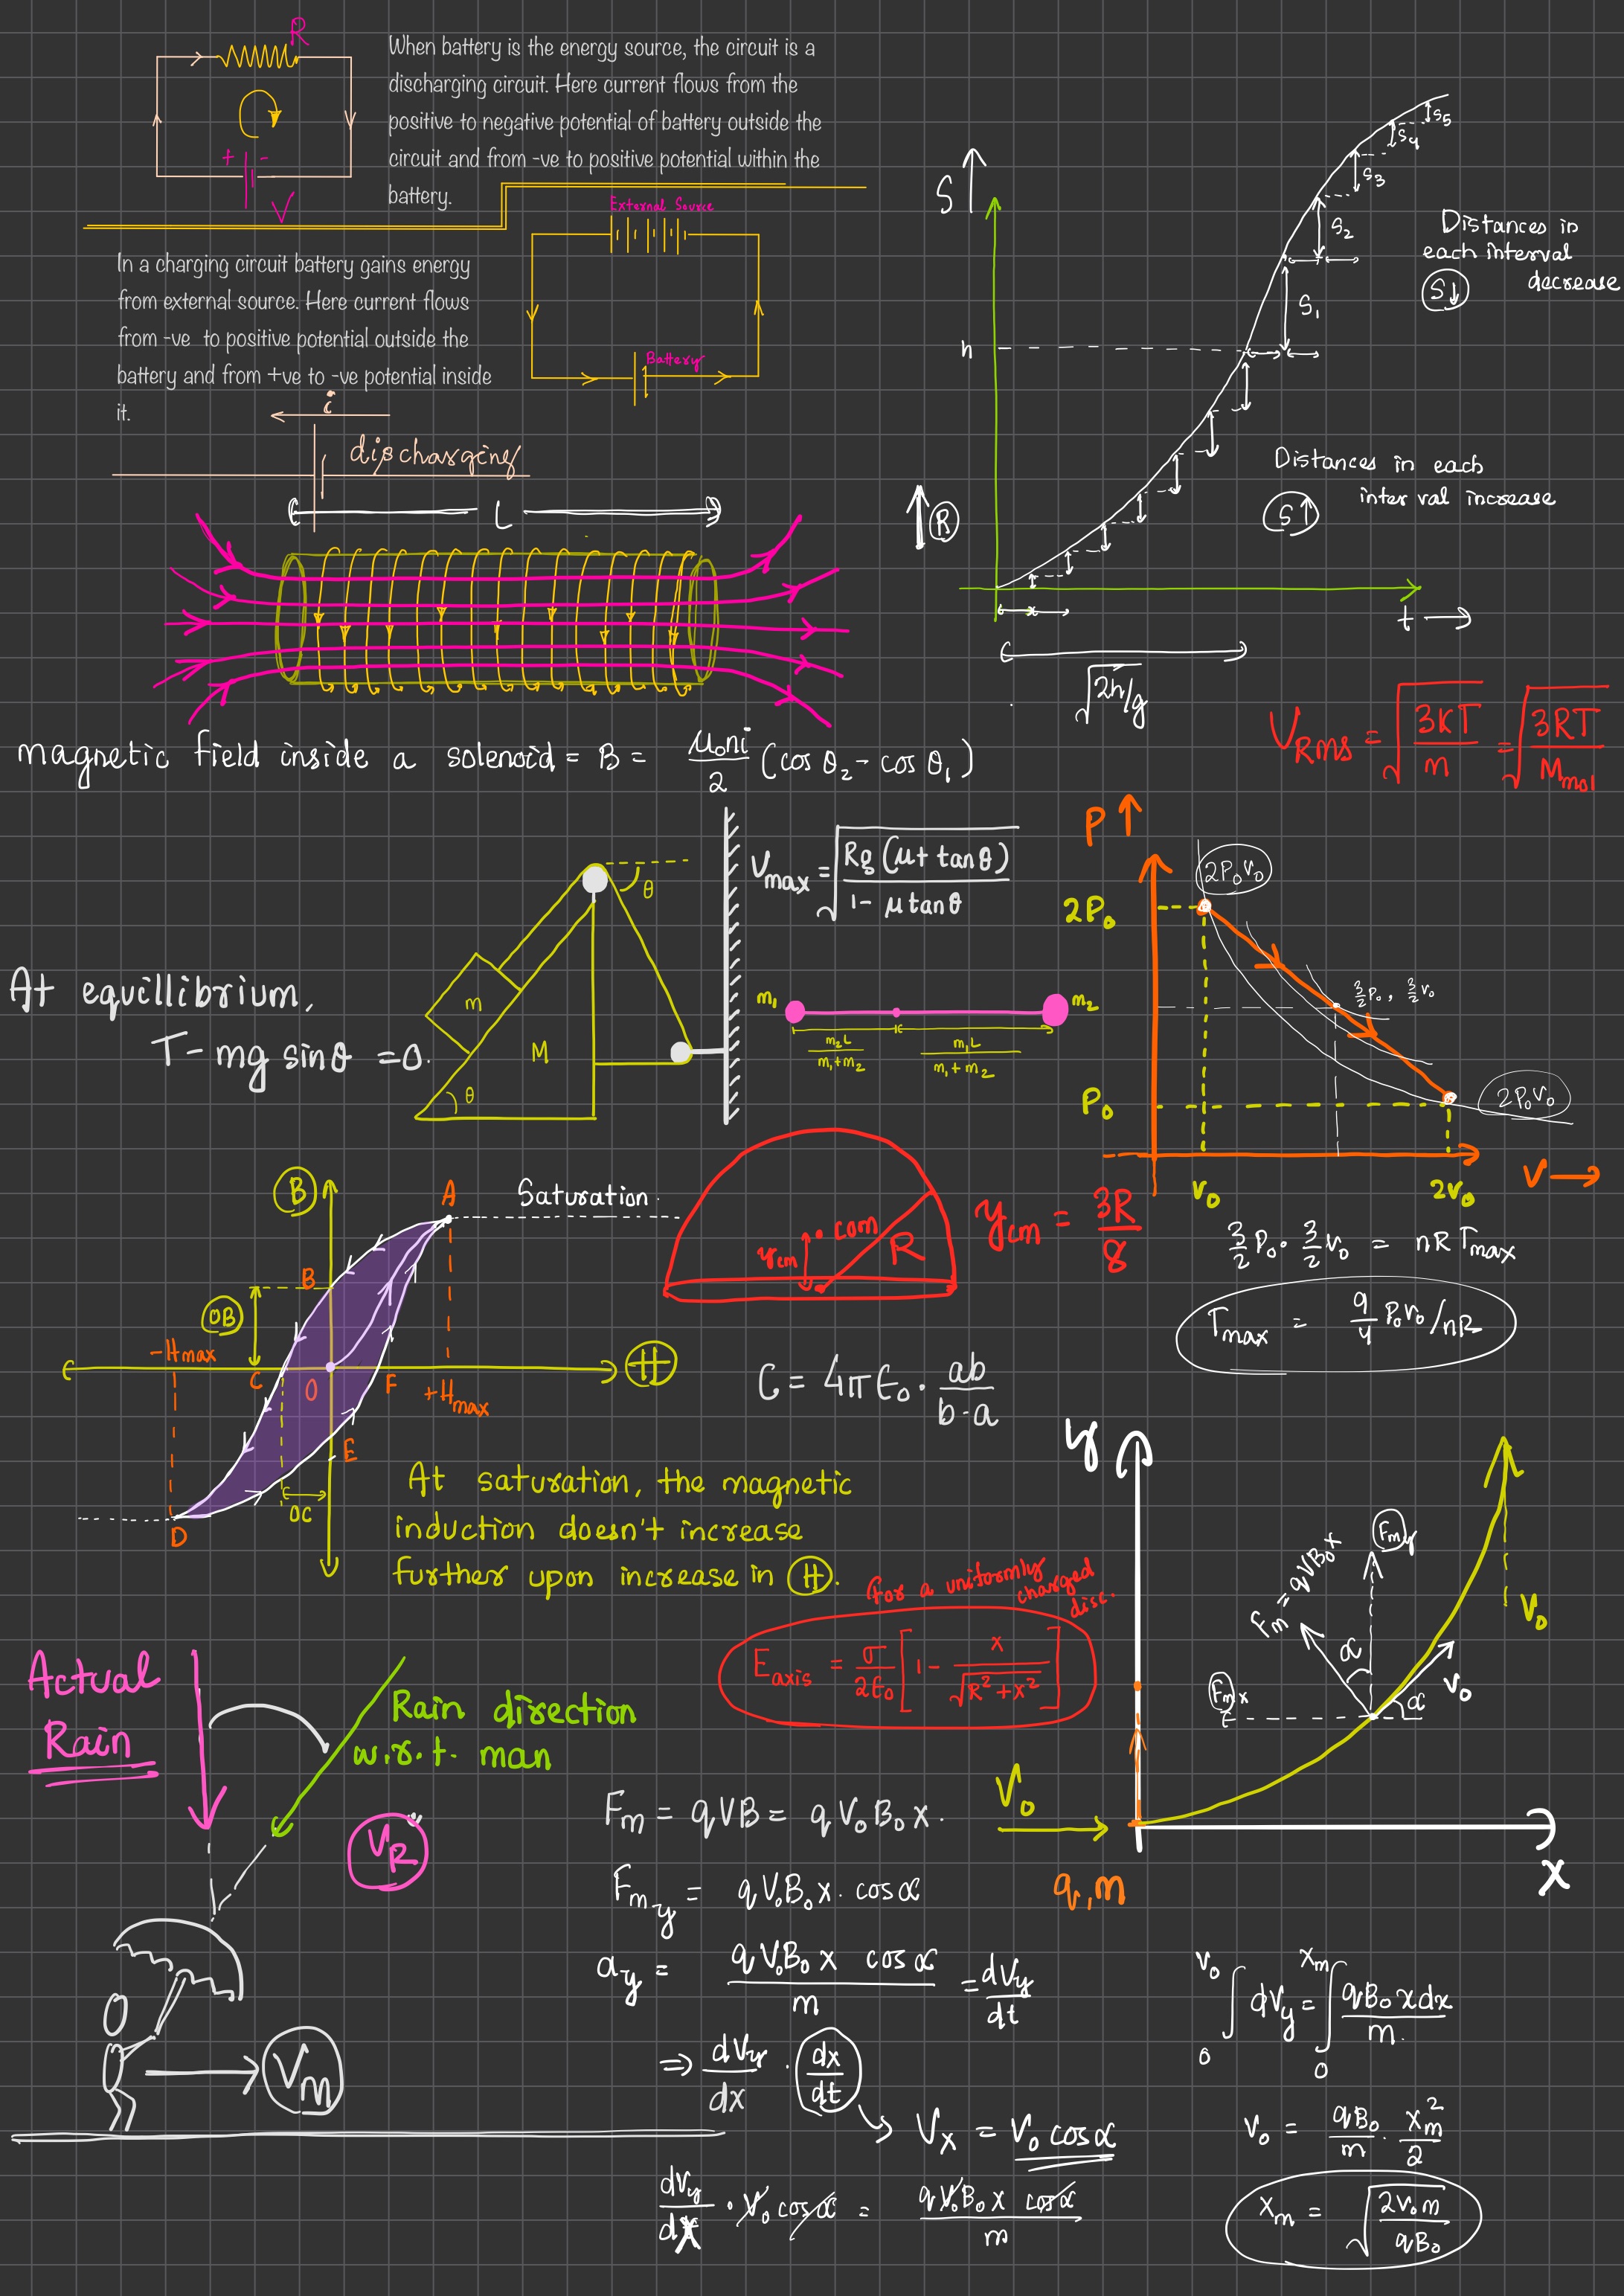 R
+ -
V
When battery is the energy source, the circuit is a
discharging circuit. Here current flows from the
positive to negative potential of battery outside the
circuit and from -ve to positive potential within the
battery.
External Source
Battery
In a charging circuit battery gains energy
from external source. Here current flows
from -ve to positive potential outside the
battery and from +ve to -ve potential inside
it.
i
discharging
L
magnetic field inside a solenoid = B = μ₀ni/2 (cos θ₂ - cos θ₁)
S
h
S₅
S₄
S₃
S₂
S₁
Distances in
each interval
decrease
S↓
Distances in each
interval increase
S↑
R
t
√2h/g
V_RMS = √(3KT/m) = √(3RT/M_mol)
θ
m
M
θ
At equillibrium,
T - mg sinθ = 0.
V_max = √(Rg (μ+ tanθ)/1 - μtanθ)
m₁
m₂
m₂L/m₁+m₂
m₁L/m₁+m₂
P
2P₀V₀
2P₀
3/2 P₀, 3/2 V₀
P₀
2P₀V₀
V₀
2V₀
V
3/2 P₀ · 3/2 V₀ = nRT_max
T_max = 9/4 P₀V₀/nR
B
A
Saturation.
B
OB
-H_max
C
O
F
+H_max
H
E
OC
D
At saturation, the magnetic
induction doesn't increase
further upon increase in H.
com
y_cm
R
y_cm = 3R/8
C = 4πε₀ · ab/b-a
for a uniformly
charged
disc.
E_axis = σ/2ε₀ [1 - x/√R²+x²]
y
F_my
F_m = qVB₀x
α
V₀
V₀
F_mx
α
V₀
q,m
x
Actual
Rain
Rain direction
w.r.t. man
V_R
V_m
F_m = qVB = qV₀B₀x.
F_my = qV₀B₀x. cosα
a_y = qV₀B₀x cosα/m = dV_y/dt
⇒ dV_y/dx · dx/dt
V_x = V₀ cosα
dV_y/dx · V₀ cosα = qV₀B₀x cosα/m
∫₀^V₀ dV_y = ∫₀^x_m qB₀xdx/m.
V₀ = qB₀/m · x_m²/2
x_m = √(2V₀m/qB₀)